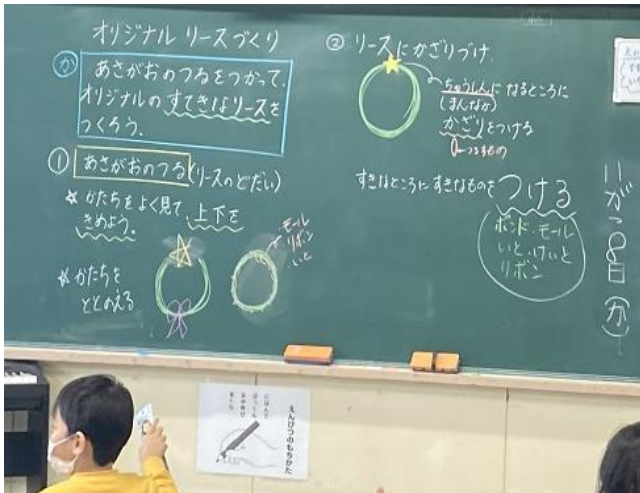 オリジナル リースづくり
か
あさがおのつるをつかって、
オリジナルの すてきなリースを
つくろう。
① あさがおのつる(リースのどだい)
☆ かたちをよく見て、上下を
きめよう。
モール
リボン
いと
☆ かたちを
ととのえる
② リースにかざりづけ
ちゅうしんになるところに
(まんなか)
かざりをつける
つるすもの
すきなところに すきなものを つける
ボンド・モール
いと、けいと
リボン
えんぴつのもちかた